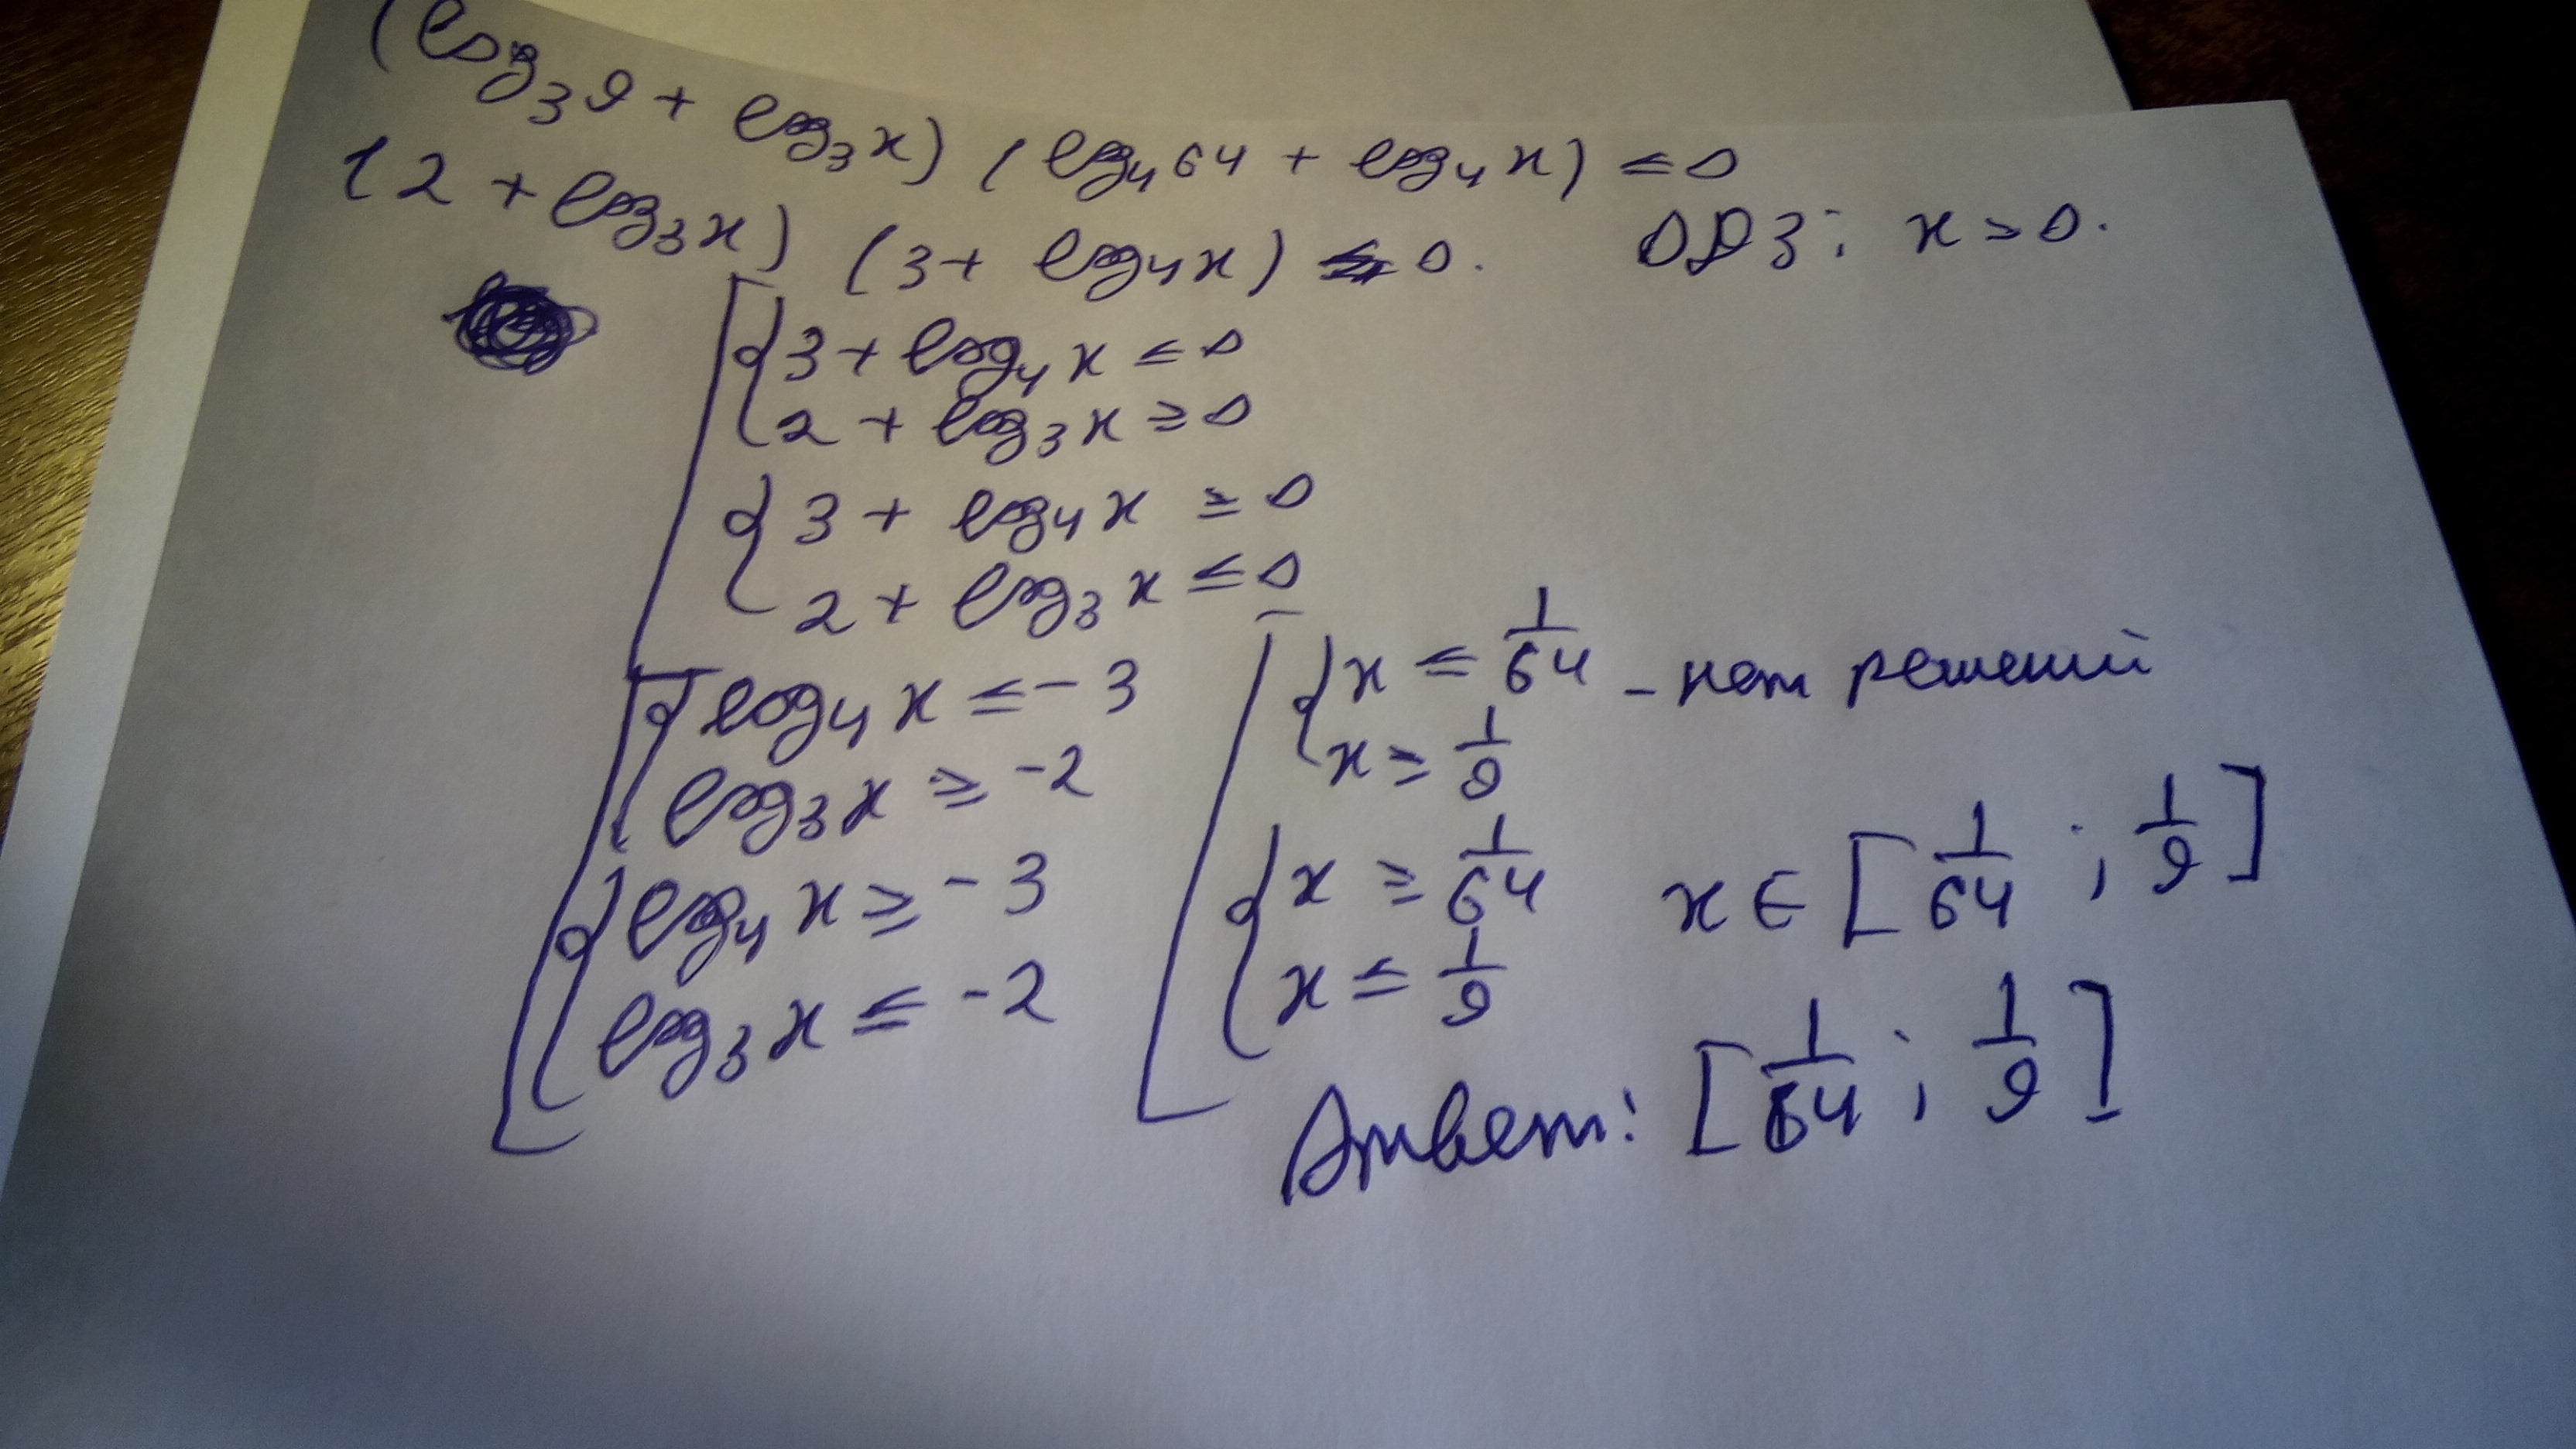 (log₃9 + log₃x) (log₄64 + log₄x) ≤ 0
(2 + log₃x) (3 + log₄x) ≤ 0. ОДЗ: x > 0.
3 + log₄x ≤ 0
2 + log₃x ≥ 0
3 + log₄x ≥ 0
2 + log₃x ≤ 0
log₄x ≤ -3
log₃x ≥ -2
log₄x ≥ -3
log₃x ≤ -2
x ≤ 1/64 - нет решений
x ≥ 1/9
x ≥ 1/64
x ≤ 1/9
x ∈ [1/64 ; 1/9]
Ответ: [1/64 ; 1/9]